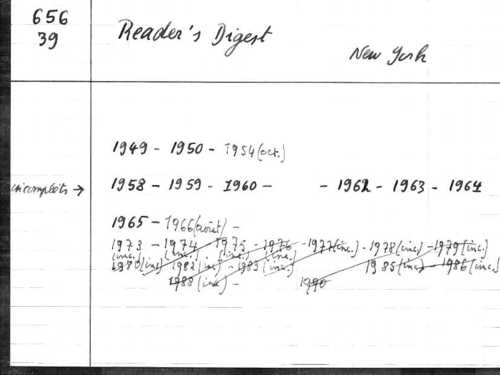 656
39
Reader's Digest
New York
1949 - 1950 - 1954 (oct.)
→ 1958 - 1959 - 1960 - - 1962 - 1963 - 1964
1965 - 1966 -
1973 - 1974 - 1975 - 1976 - 1977 (inc.) - 1978 (inc.) - 1979 (inc.)
(inc.) (inc.) (inc.) (inc.)
1980 (inc) 1982 (inc) - 1983 (inc.) 1985 (inc) - 1986 (inc.)
1988 (inc) - 1990